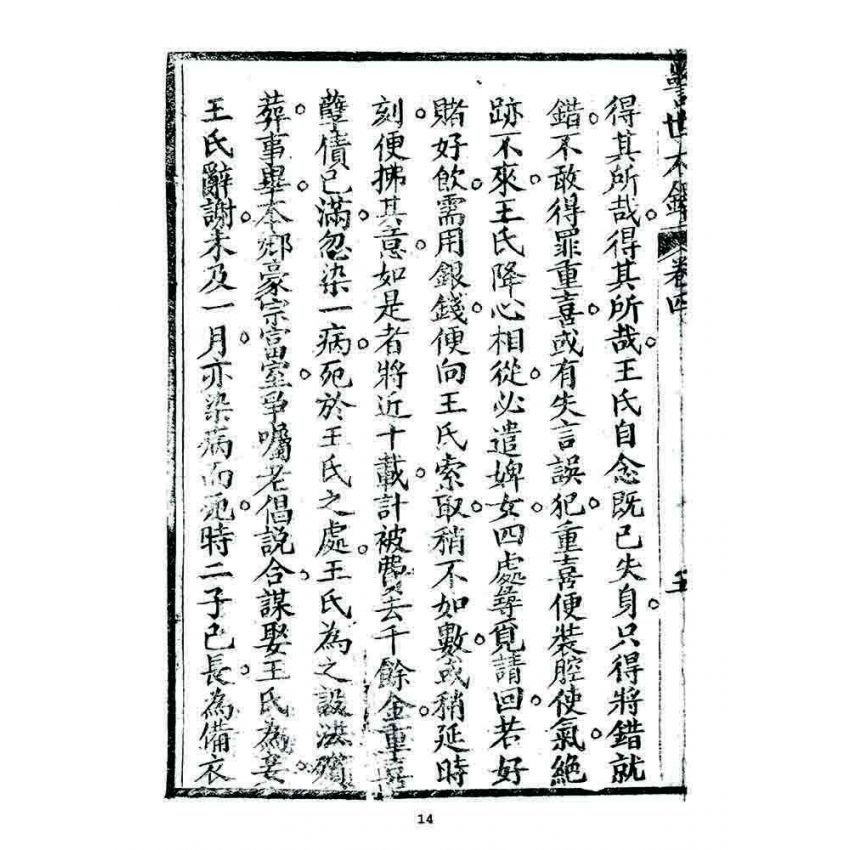 警世木鐸 卷四 五
得其所哉得其所哉王氏自念既已失身只得將錯就
錯不敢得罪重喜或有失言誤犯重喜便裝腔使氣絕
跡不來王氏降心相從必遣婢女四處尋覓請回若好
賭好飲需用銀錢便向王氏索取稍不如數或稍延時
刻便拂其意如是者將近十載計被費去千餘金重喜
孽債已滿忽染一病死於王氏之處王氏為之設法殯
葬事畢本鄉豪宗富室爭囑老倡說合謀娶王氏為妾
王氏辭謝未及一月亦染病而死時二子已長為備衣
14